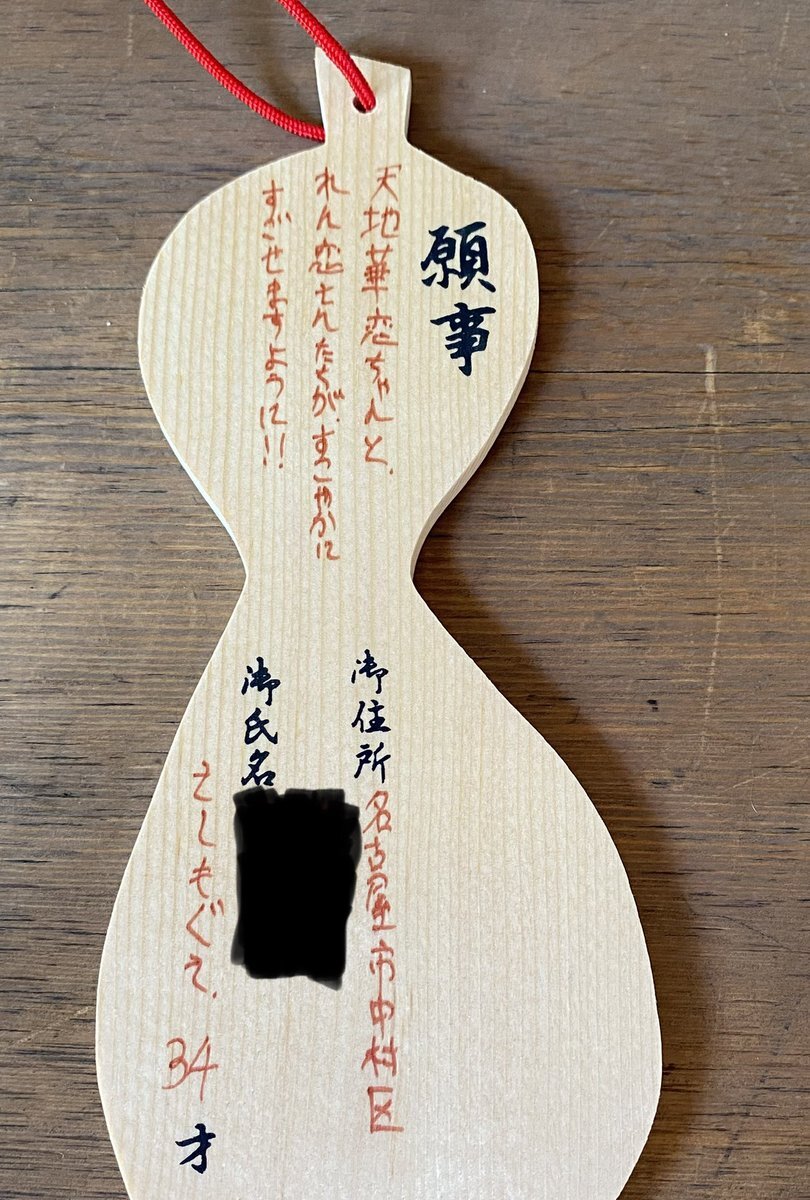 願事
天地華恋ちゃんと、
れん恋さんたちが、すこやかに
すごせますように!!
御住所 名古屋市中村区
御氏名
さしもぐさ、34才